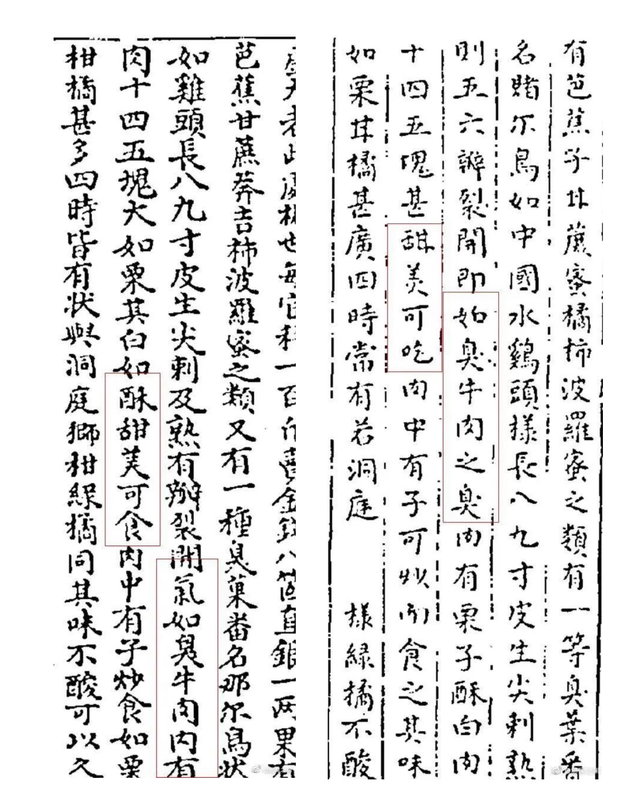 有芭蕉子甘蔗蜜橘柿波羅蜜之類有一等臭葉番
名賭尔烏如中國水鷄頭樣長八九寸皮生尖刺熟
則五六瓣裂開即如臭牛肉之臭内有栗子酥白肉
十四五塊甚甜美可吃肉中有子可炒而食之其味
如栗甘橘甚廣四時常有若洞庭 樣緑橘不酸
也每官秤一百斤賣金錢八箇直銀一两果有
芭蕉甘蔗莽吉柿波羅蜜之類又有一種臭菓番名那尔烏状
如雞頭長八九寸皮生尖刺及熟有瓣裂開氣如臭牛肉内有
肉十四五塊大如栗其白如酥甜美可食肉中有子炒食如栗
柑橘甚多四時皆有状與洞庭獅柑緑橘同其味不酸可以久